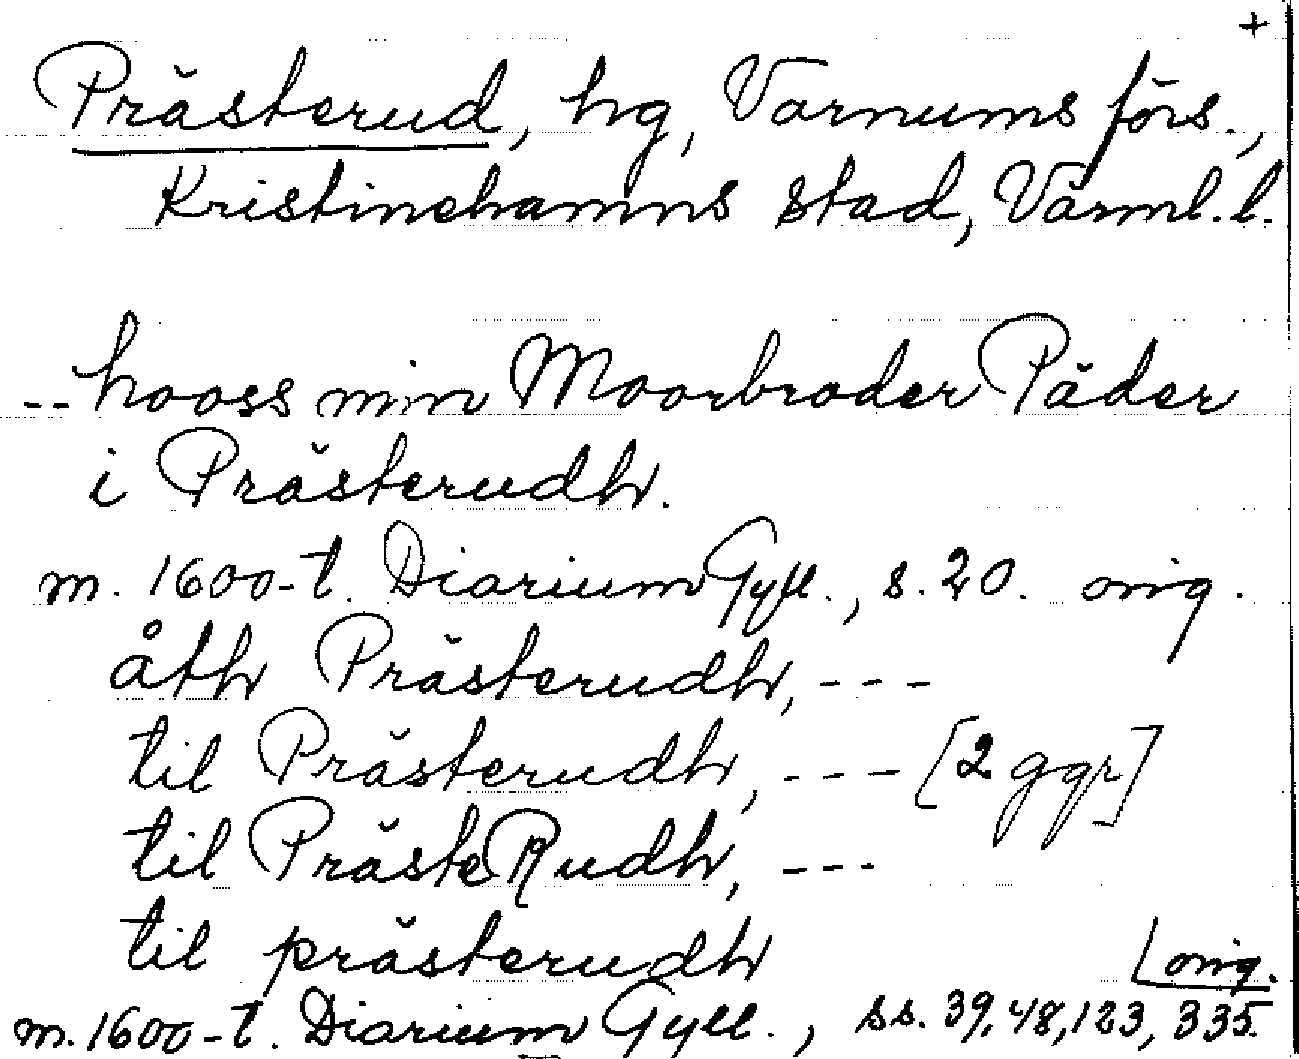 +
Prästerud, hg, Varnums förs.,
Kristinehamns stad, Värml. l.
-- hooss min Moorbroder Päder
i Prästerudh.
m. 1600-t. Diarium Gyll., s. 20. orig.
åth Prästerudh, ---
til Prästerudh, --- [2 ggr]
til PrästeRudh, ---
til prästerudh
orig.
m. 1600-t. Diarium Gyll., ss. 39, 48, 123, 335.